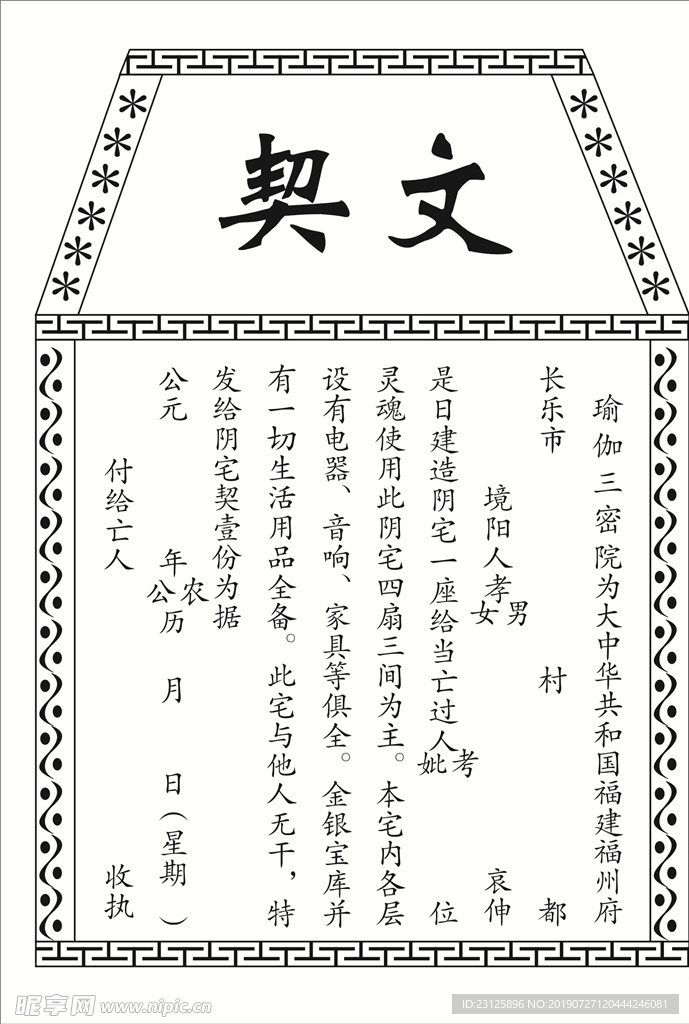 文契
瑜伽三密院为大中华共和国福建福州府
长乐市 村 都
境阳人孝男女 哀伸
是日建造阴宅一座给当亡过人考妣 位
灵魂使用此阴宅四扇三间为主。本宅内各层
设有电器、音响、家具等俱全。金银宝库并
有一切生活用品全备。此宅与他人无干，特
发给阴宅契壹份为据
公元 年农公历 月 日（星期 ）
付给亡人 收执
昵享网 www.nipic.cn
ID:23125896 NO:20190727120444246081